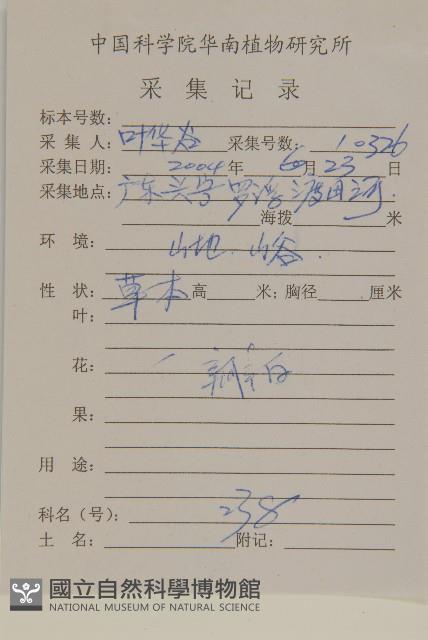 中国科学院华南植物研究所
采集记录
标本号数:
采集人: 叶华谷 采集号数: 10326
采集日期: 2004年 6月 23日
采集地点: 广东兴宁罗浮渡田河.
海拨 米
环境: 山地. 山谷.
性状: 草本 高 米; 胸径 厘米
叶:
花: 白
果:
用途:
科名(号): 238
土名: 附记:
國立自然科學博物館
NATIONAL MUSEUM OF NATURAL SCIENCE